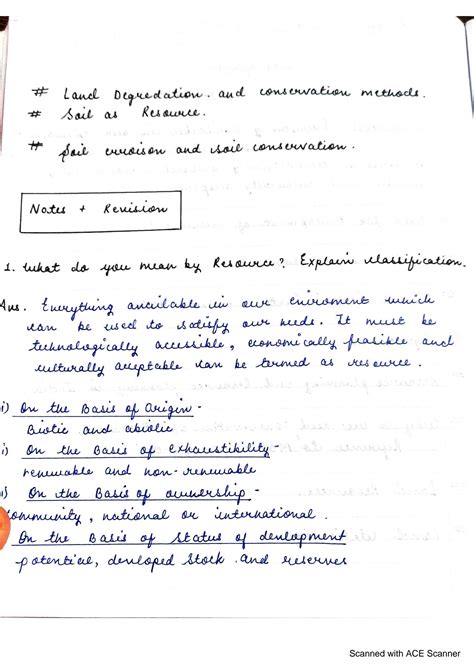 # Land Degredation. and conservation methods.
# Soil as Resource.
# Soil erroison and soil conservation.
Notes + Revision
1. What do you mean by Resource? Explain classification.
Ans. Everything anailable in our eniroment which
can be used to satisfy our needs. It must be
technologically accessible, economically feasible and
culturally acceptable can be termed as resource.
i) On the Basis of Origin -
Biotic and abiotic
i) On the Basis of Exhaustibility -
renewable and non-renewable
i) On the Basis of ownership -
Community, national or international.
On the Basis of Status of devlopment
potential, devloped stock and reserves
Scanned with ACE Scanner